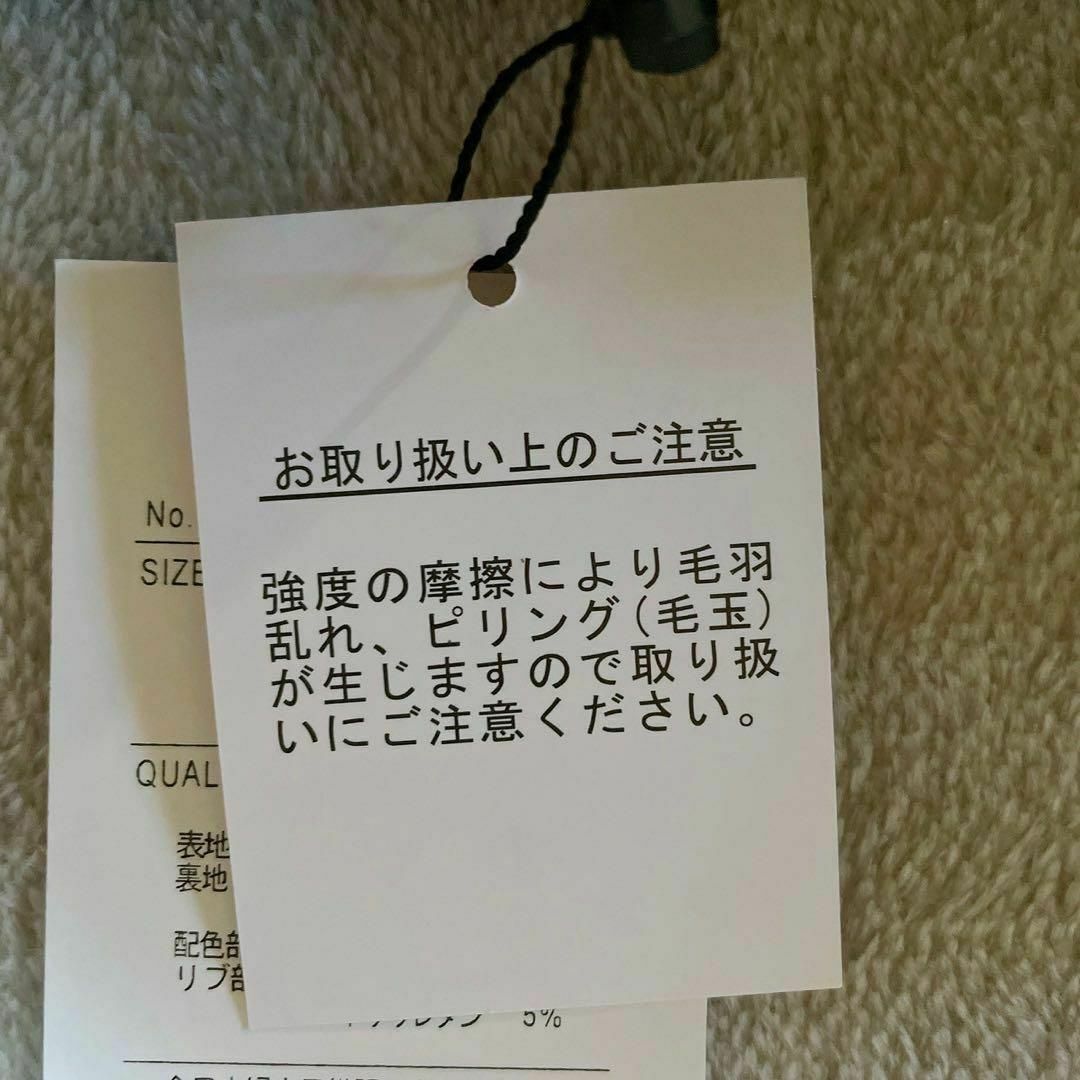 お取り扱い上のご注意
強度の摩擦により毛羽
乱れ、ピリング(毛玉)
が生じますので取り扱
いにご注意ください。
No.
SIZE
QUAL
表地
裏地
配色部
リブ部
5%